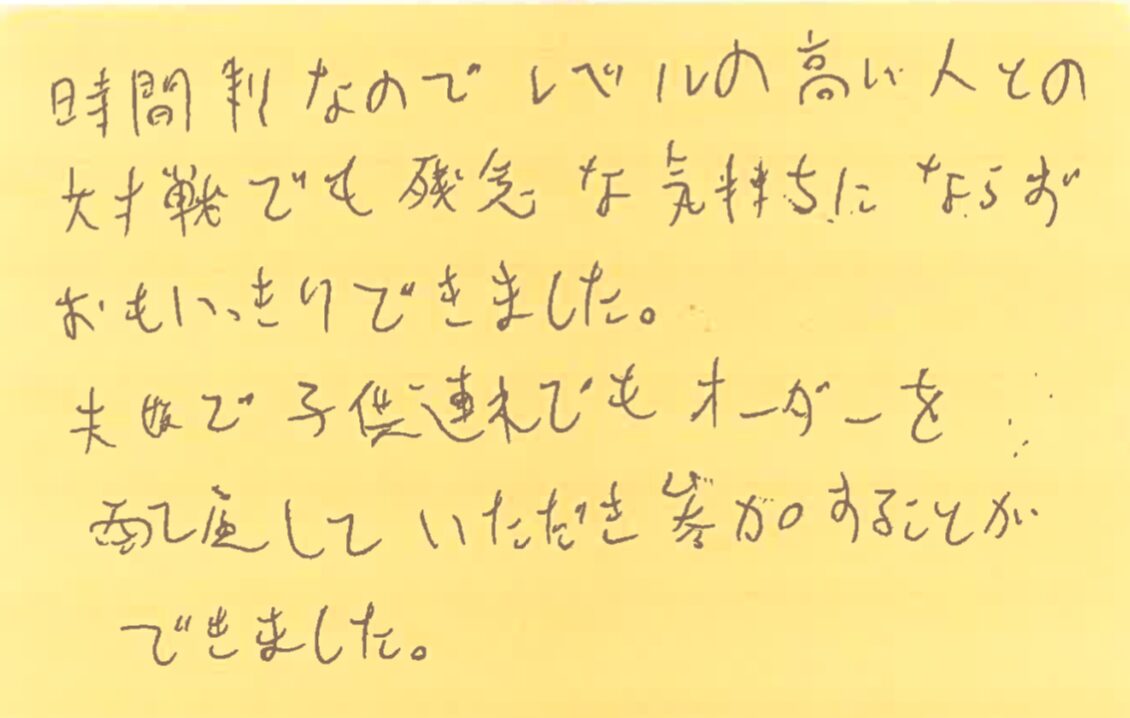 時間制なのでレベルの高い人との
対戦でも残念な気持ちにならず
おもいっきりできました。
夫婦で子供連れでもオーダーを
配慮していただき参加することが
できました。